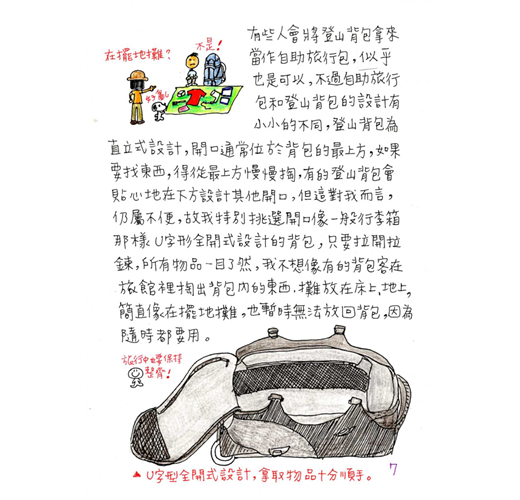 有些人會將登山背包拿來
當作自助旅行包，似乎
也是可以，不過自助旅行
包和登山背包的設計有
小小的不同，登山背包為
直立式設計，開口通常位於背包的最上方，如果
要找東西，得從最上方慢慢掏，有的登山背包會
貼心地在下方設計其他開口，但這對我而言，
仍屬不便，故我特別挑選開口像一般行李箱
那樣U字形全開式設計的背包，只要拉開拉
鍊，所有物品一目了然，我不想像有的背包客在
旅館裡掏出背包內的東西，攤放在床上、地上，
簡直像在擺地攤，也暫時無法放回背包，因為
隨時都要用。
在擺地攤？
不是！
好亂
旅行中要保持
整齊！
▲U字型全開式設計，拿取物品十分順手。
7